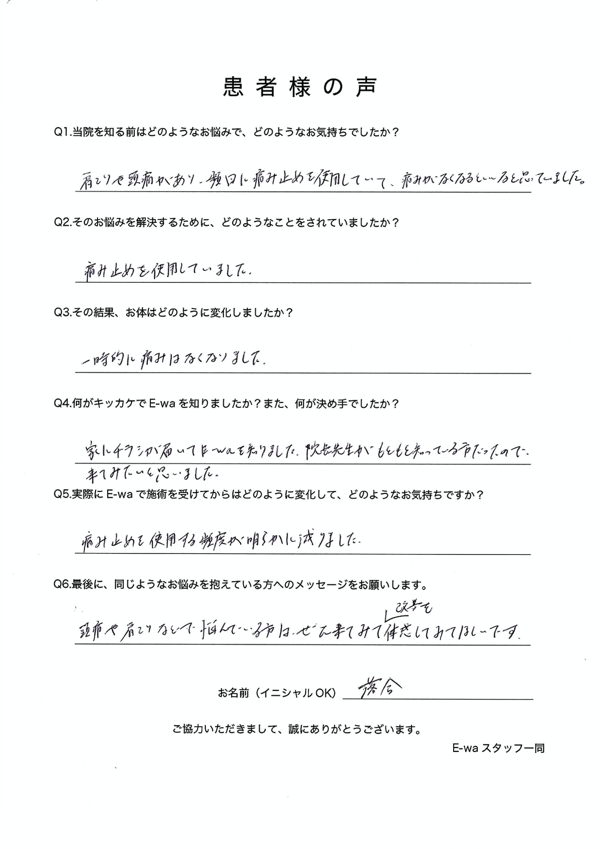 患者様の声
Q1.当院を知る前はどのようなお悩みで、どのようなお気持ちでしたか？
肩こりや頭痛があり、頻回に痛み止めを使用していて、痛みがなくなるといいなと思っていました。
Q2.そのお悩みを解決するために、どのようなことをされていましたか？
痛み止めを使用していました.
Q3.その結果、お体はどのように変化しましたか？
一時的に痛みはなくなりました.
Q4.何がキッカケでE-waを知りましたか？また、何が決め手でしたか？
家にチラシが届いてE-waを知りました.院長先生がもともと知っている方だったので、
来てみたいと思いました.
Q5.実際にE-waで施術を受けてからはどのように変化して、どのようなお気持ちですか？
痛み止めを使用する頻度が明らかに減りました.
Q6.最後に、同じようなお悩みを抱えている方へのメッセージをお願いします。
改善を
頭痛や肩こりなどで悩んでいる方は、ぜひ来てみて体感してみてほしいです.
お名前（イニシャルOK） 落合
ご協力いただきまして、誠にありがとうございます。
E-waスタッフ一同